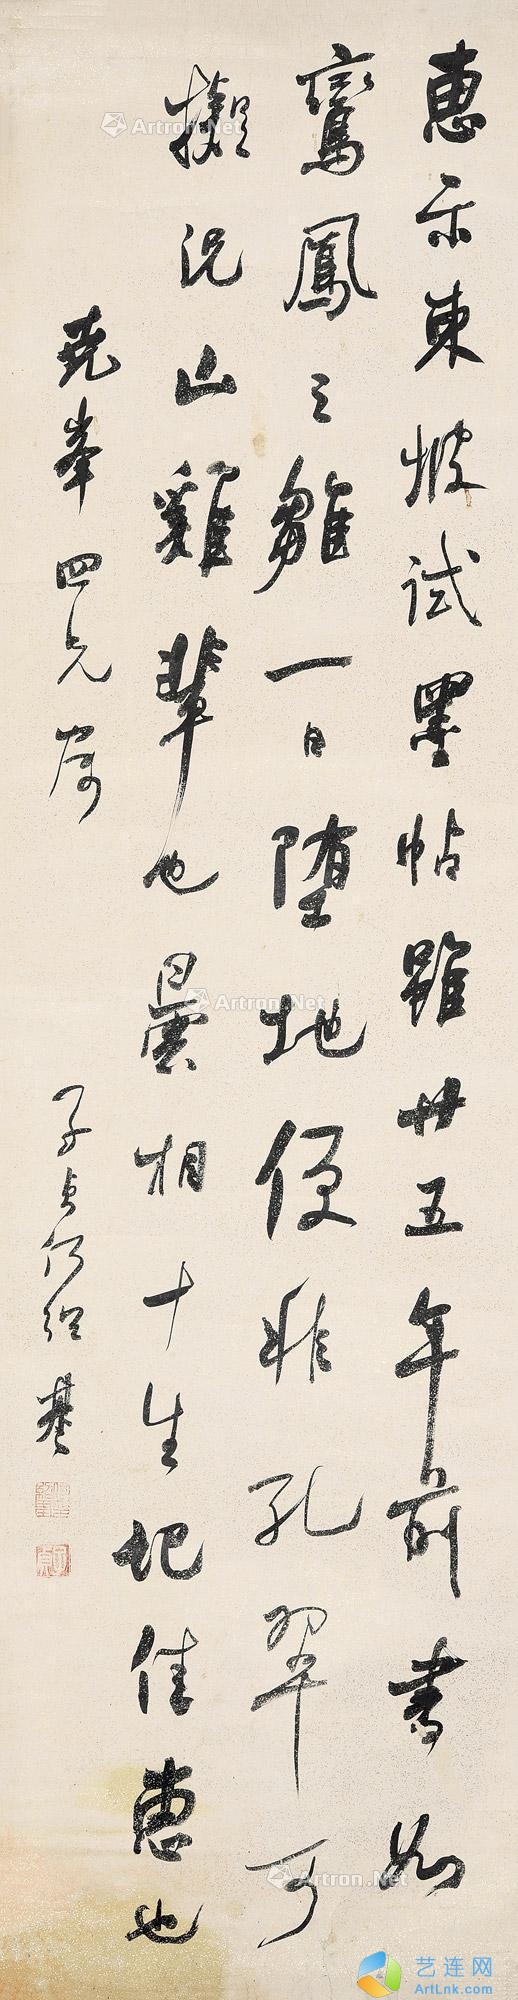 惠示東坡試墨帖雖廿五年前書如
鸞鳳之雛一日墮地便非孔翠可
擬況山雞輩也曇相十生記佳惠也
堯峯四兄屬
子貞何紹基
Artron.Net
Artron.Net
Artron.Net
艺连网
ArtLnk.com